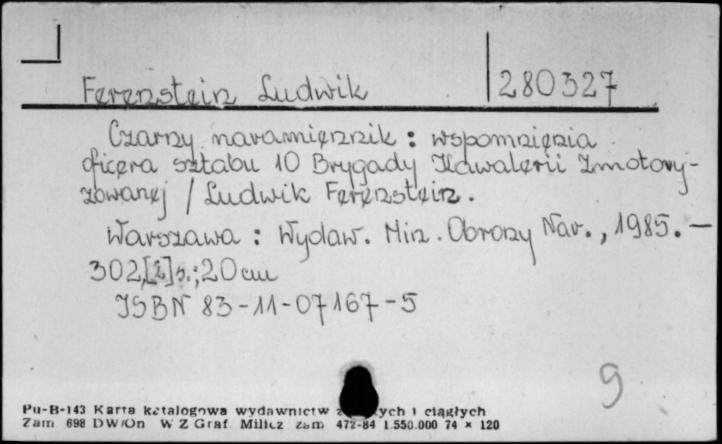 Ferenstein Ludwik 280327
Czarny naramiennik : wspomnienia
oficera sztabu 10 Brygady Kawalerii Zmotory-
zowanej / Ludwik Ferenstein.
Warszawa : Wydaw. Min. Obrony Nar., 1985. —
302,[2]s.; 20 cm
ISBN 83-11-07167-5
9
Pu-B-143 Karta katalogowa wydawnictw i ciągłych
Zam. 698 DW/On W Z Graf. Milicz zam 472-84 1.550.000 74 × 120